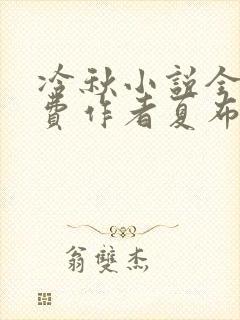 冷秋小說全
費作者夏布
翁雙杰